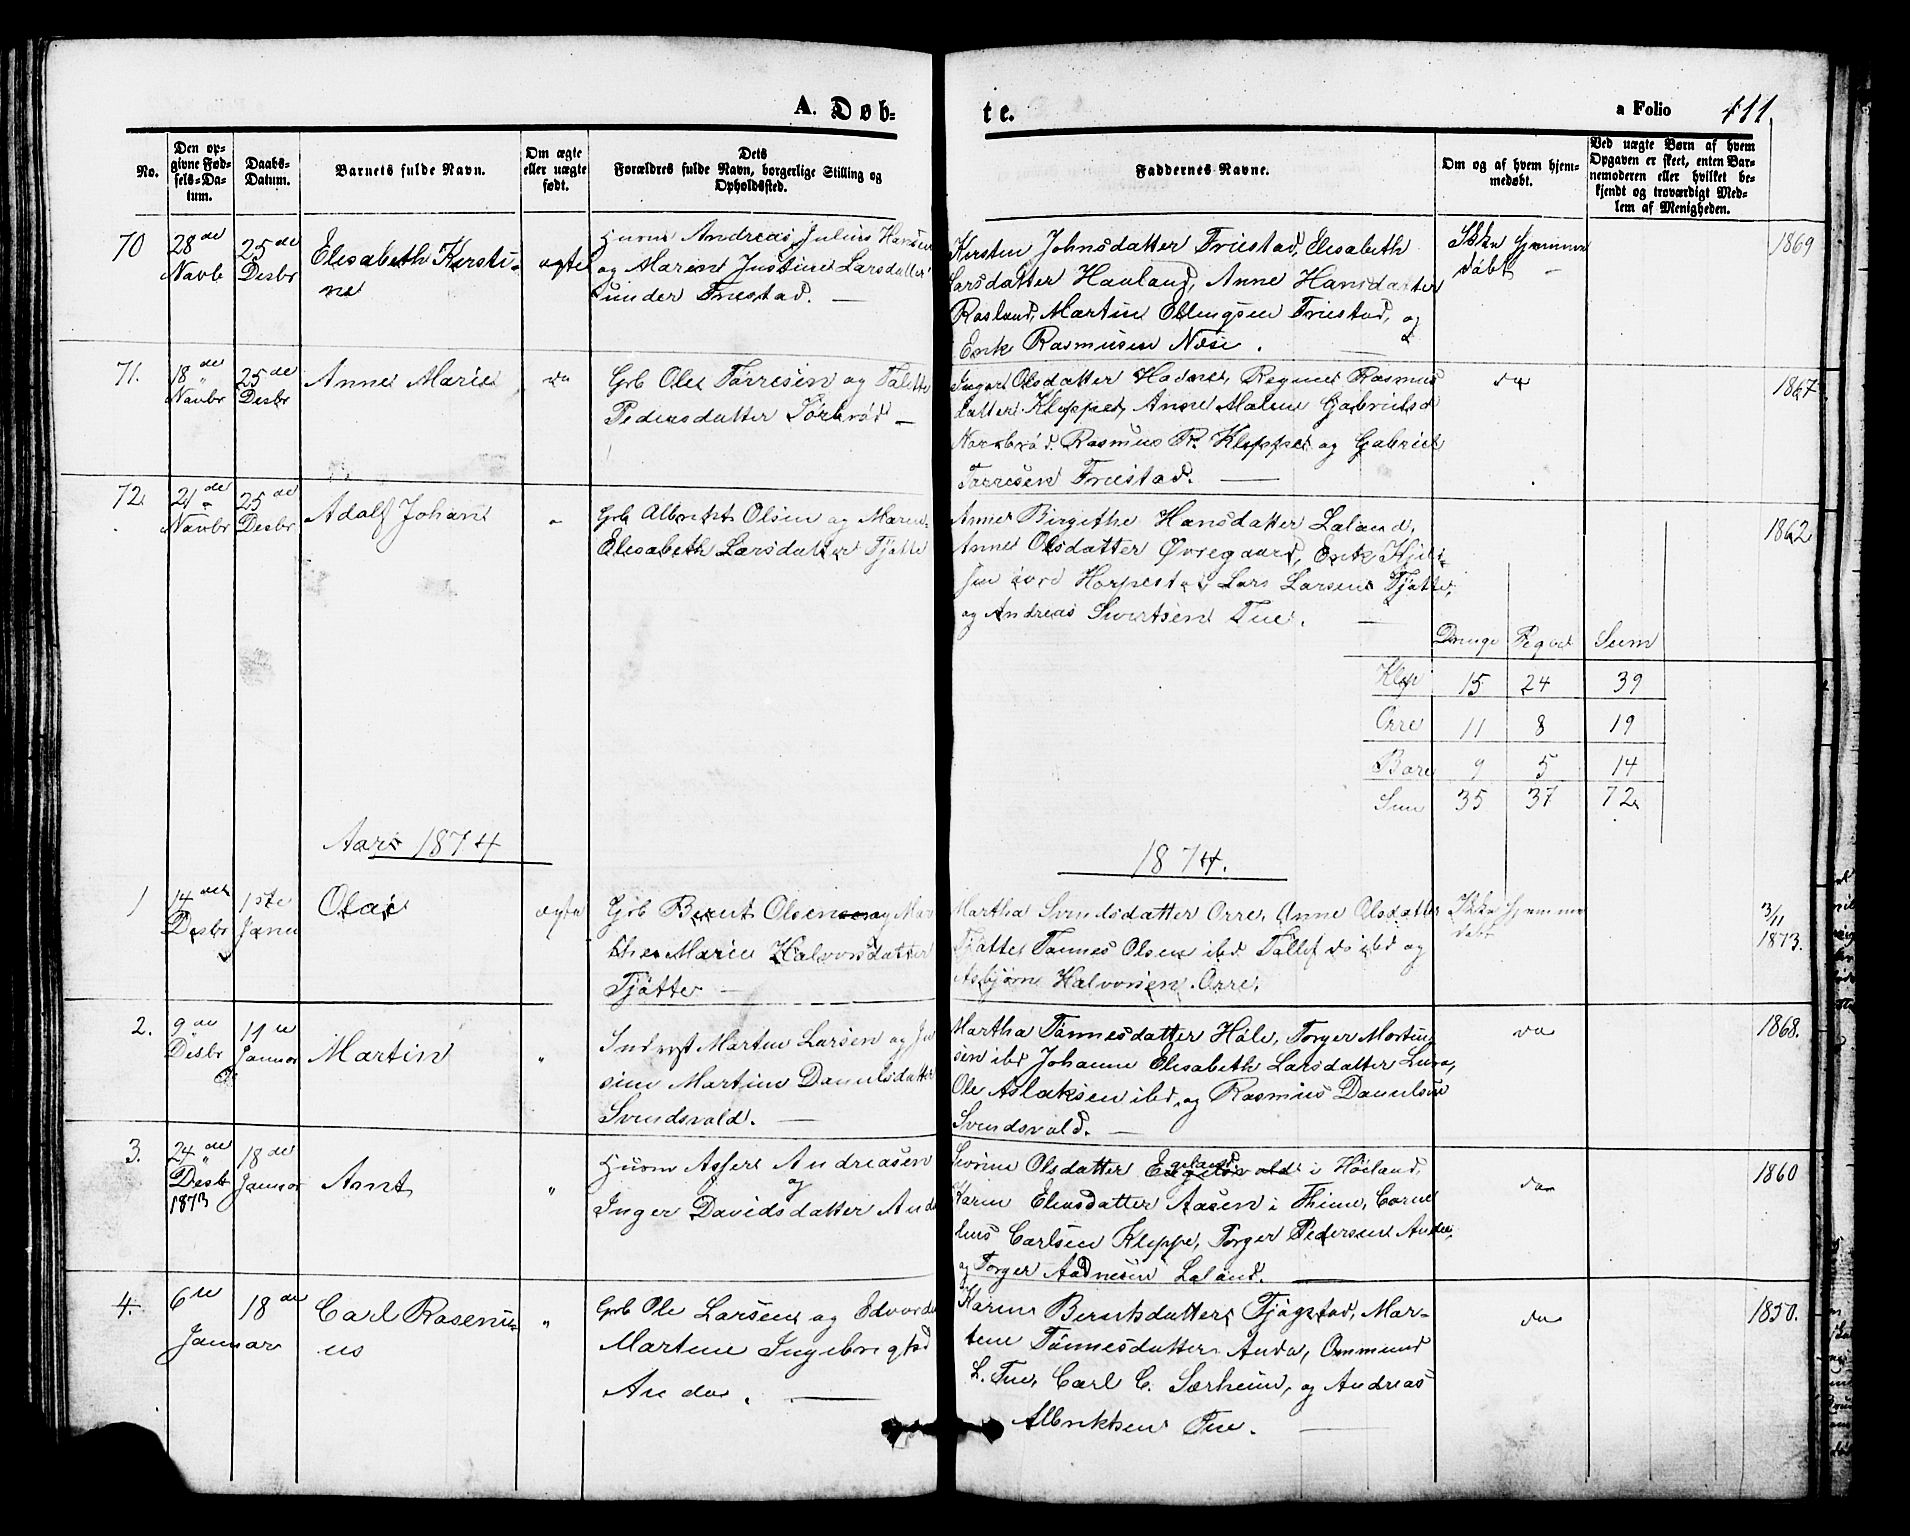 A. Døb=
te.
a Folio
111.
No.
Den op-
givne Fød-
sels-Da-
tum.
Daabs-
Datum.
Barnets fulde Navn.
Om ægte
eller uægte
født.
Dets
Forældres fulde Navn, borgerlige Stilling og
Opholdssted.
Faddernes Navne.
Om og af hvem hjem-
medøbt.
Ved uægte Børn af hvem
Opgaven er skeet, enten Bar-
nemoderen eller hvilket be-
kjendt og troværdigt Med-
lem af Menigheden.
70
28de
Navbr
25de
Desbr
Elesabeth Kersti-
ne
ægte
Huusm Andreas Julius Hansen
og Maren Justine Larsdatter
under Friestad. —
Kirsten Johnsdatter Friestad, Elisabeth
Larsdatter Hauland, Anne Hansdatter
Rosland, Martin Ellingsen Friestad, og
Erik Rasmusen Næse.
Ikke hjemme
døbt —
1869
71.
18de
Navbr
25de
Desbr
Anne Marie
do
Grb Ole Tørresen og Talette
Pedersdatter Sørbrød —
Inger Olsdatter Hodne, Regine Rasmus
datter Kleppe, Anne Malene Gabrielsd
Nordbrød. Rasmus R. Kleppe og Gabriel
Tørresen Friestad. —
do
1867.
72.
21de
Navbr
25de
Desbr
Adolf Johan
"
Grb Albrikt Olsen og Maren
Elesabeth Larsdatter Tjøtte
Anne Birgithe Hansdatter Laland,
Anne Olsdatter Øvregaard, Erik
Horpestad, Lars Larsen Tjøtte,
og Andreas Sivertsen Tue. —
1862
Drenge Pegod Sum
Klep 15 24 39
Orre 11 8 19
Bore 9 5 14
Sum 35 37 72
Aar 1874
1874.
1
14de
Desbr
1ste
Janu
Olai
ægte
Grb Berent Olsen og Mar
the Marie Halvorsdatter
Tjøtte —
Martha Svendsdatter Orre, Anne Olsdatter
Tjøtte Tønnes Olsen ibd Tollef do ibd og
Asbjørn Halvorsen Orre.
Ikke hjemme
døbt
3/11
1873.
2.
9de
Desbr
11te
Januar
Martin
"
Inderst Martin Larsen og Ju
sine Martine Danielsdatter
Svendsvold. —
Martha Tønnesdatter Hole, Torger Morten
sen ibd Johanne Elisabeth Larsdatter Lura,
Ole Aslaksen ibd, og Rasmus Danielsen
Svendsvold. —
do
1868.
3.
24de
Desb
1873
18de
Januar
Arnt
"
Huusm Asser Andreasen
og
Inger Davidsdatter Anda
Severine Olsdatter Egeland i Høiland,
Karen Eliasdatter Aasen i Thime, Corne
lius Carlsen Kleppe, Torger Pedersen Anda,
og Torger Aadnesen Laland. —
do
1860
4.
6te
Januar
18de
Carl Rosenii-
us
"
Grb Ole Larsen og Edvarda
Martine Ingebrigtsd
Anda. —
Karen Berntsdatter Tjøgstad, Mar-
tine Tønnesdatter Anda, Ommund
L. Tue, Carl C. Særheim, og Andreas
Albriktsen Tue. —
do
1850.